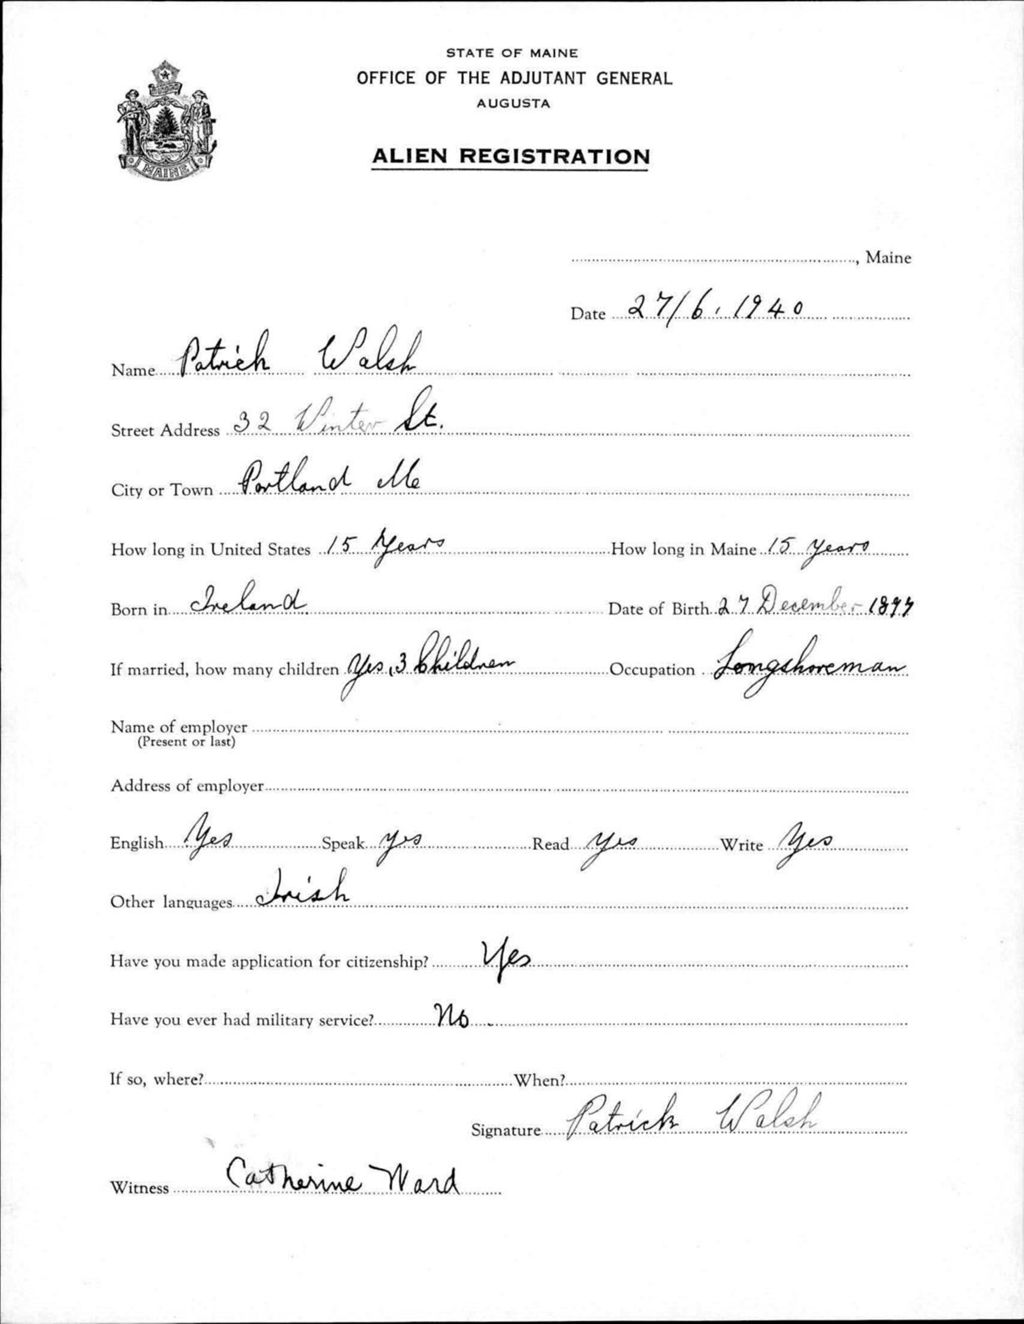 STATE OF MAINE
OFFICE OF THE ADJUTANT GENERAL
AUGUSTA
ALIEN REGISTRATION
MAINE
, Maine
Date 27/6, 1940
Name Patrick Walsh
Street Address 32 Winter St.
City or Town Portland Me
How long in United States 15 Years How long in Maine 15 years
Born in Ireland Date of Birth 27 December 1897
If married, how many children Yes, 3 Children Occupation Longshoreman
Name of employer
(Present or last)
Address of employer
English Yes Speak yes Read yes Write Yes
Other languages Irish
Have you made application for citizenship? Yes
Have you ever had military service? No
If so, where? When?
Signature Patrick Walsh
Witness Catherine Ward